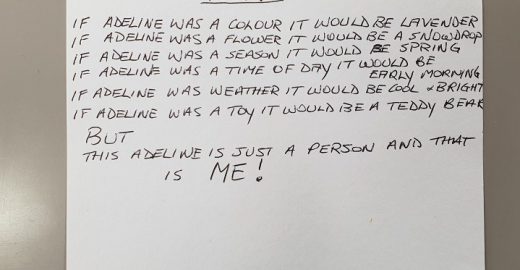 IF ADELINE WAS A COLOUR IT WOULD BE LAVENDER
IF ADELINE WAS A FLOWER IT WOULD BE A SNOWDROP
IF ADELINE WAS A SEASON IT WOULD BE SPRING
IF ADELINE WAS A TIME OF DAY IT WOULD BE
EARLY MORNING
IF ADELINE WAS WEATHER IT WOULD BE COOL & BRIGHT
IF ADELINE WAS A TOY IT WOULD BE A TEDDY BEAR
BUT
THIS ADELINE IS JUST A PERSON AND THAT
IS ME!